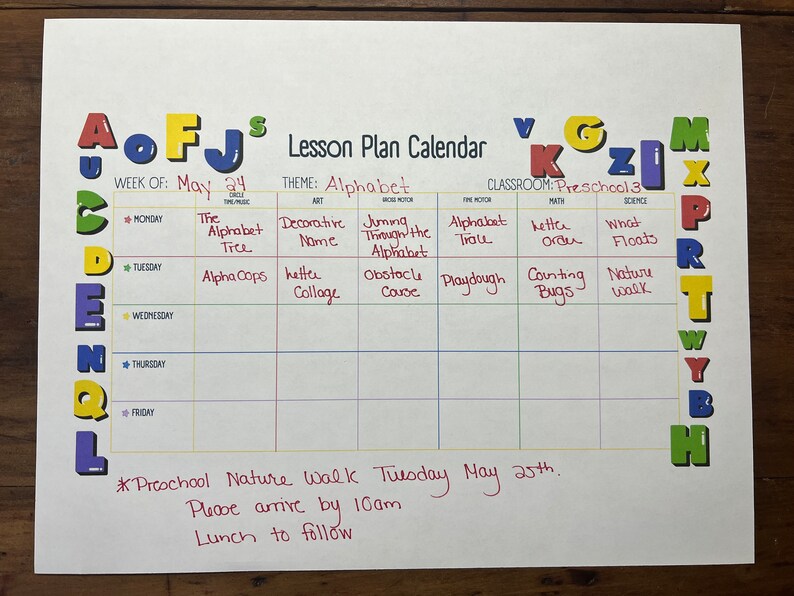 A O F J S
Lesson Plan Calendar
V K G Z I M
U
C D E N Q L
X P R T W Y B H
WEEK OF: May 24 THEME: Alphabet CLASSROOM: Preschool 3
CIRCLE TIME/MUSIC ART GROSS MOTOR FINE MOTOR MATH SCIENCE
MONDAY
The
Alphabet
Tree
Decorative
Name
Juming
Through the
Alphabet
Alphabet
Letter
Order
What
Floats
TUESDAY
Alpha Oops
Letter
Collage
Obstacle
Course
Playdough
Counting
Bugs
Nature
Walk
WEDNESDAY
THURSDAY
FRIDAY
*Preschool Nature Walk Tuesday May 25th.
Please arrive by 10am
Lunch to follow